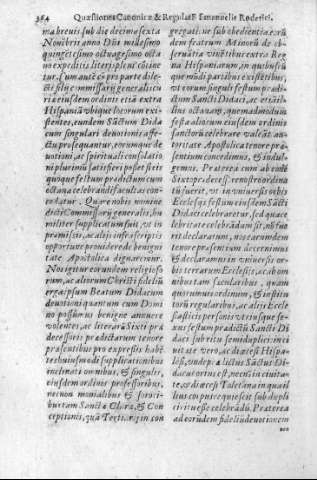 384 Quæstiones Canonicæ & Regulares Emanuelis Roderici.
ma brevis sub die decimasexta
Novēbris anno Dñi millesimo
quingētesimo octuagesimo octavo
expediti literis plen' cōtine
tur. Cum autē ex parte dile-
cti filij commissarij generalis cu
riæ eiusdem ordinis etiā extra
Hispaniā vbique locorum exi-
stentes, eundem Sāctum Dida
cum singulari devotionis affe-
ctu prosequantur, eorumque de
votioni, ac spirituali consolatio
ni plurimū satisfieri posset si eis
quoque festum prædictum cum
octava celebrandi facultas con-
cedatur. Quare nobis nomine
dicti Commissarij generalis, hu
militer supplicatum fuit, vt in
præmissis, ac alijs infrascriptis
opportune providere de benigni
tate Apostolica dignaremur.
Nos igitur eorundem religioso
rum, ac aliorum Christi fideliū
erga ipsum Beatum Didacum
devotioni quantum cum Domi
no possumus benigne annuere
volentes, ac literarū Sixti præ
decessoris prædictarum tenore
præsentibus pro expressis habē
tes huiusmodi supplicationibus
inclinati omnibus, & singulis,
eiusdem ordinis professoribus,
necnon monialibus & sorori-
bus tam Sanctæ Claræ, & Con
ceptionis, quā Tertij, reg. in con
gregatione sub obedientia eorū
dem fratrum Minorū de ob-
servātia vivētibus extra Re
gna Hispaniarum, in quibusvi
vis orbis partibus existētibus,
vt eorum singuli festum prædictum
Sancti Didaci, ac etiā illi
us octavam, quemadmodum
festa aliorum eiusdem ordinis
sanctorū celebrare valeāt au-
toritate Apostolica tenore præ-
sentium concedimus, & indul-
gemus. Præterea cum ab eodē
Sixto prædecess. nostro ordina
tū fuerit, vt in vniversis orbis
Ecclesijs festum eiusdem Sācti
Didaci celebraretur, sed quace
lebritate celebrādum sit, nō fue
rit declaratum, nos earundem
tenore præsentium decernimus
& declaramus in vniversis or-
bis terrarum Ecclesijs, ac ab om
nibus tam sæcularibus, quam
quorumvis ordinum, & institu
torū regularibus, ac alijs Eccle
siasticis personis vtriusque se-
xus festum prædictū Sancti Di-
daci sub ritu semiduplici: in ci
vitate vero, ac diœcesi Hispa-
lēsi, vnde prælictus Sāctus Di-
dacus ortus est, necnō in civita-
te, ac diœcesi Toletana in qua il
lius corpus requiescit sub dupli
ci ritu esse celebrādū. Præterea
ad eorūdem fideliū devotionem